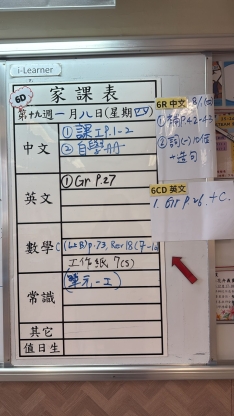 i-Learner
6D
家課表
第十九週 一月八日(星期四)
中文
① 課工P.1-2
② 自學冊
英文
① Gr P.27
數學
(6上B) p.73, Rev 18 (7-10)
工作紙 7(S)
常識
(單元一工)
其它
值日生
6R 中文
① 補P.42-43
+ 造句
6CD 英文
1. Gr P.26. + C.